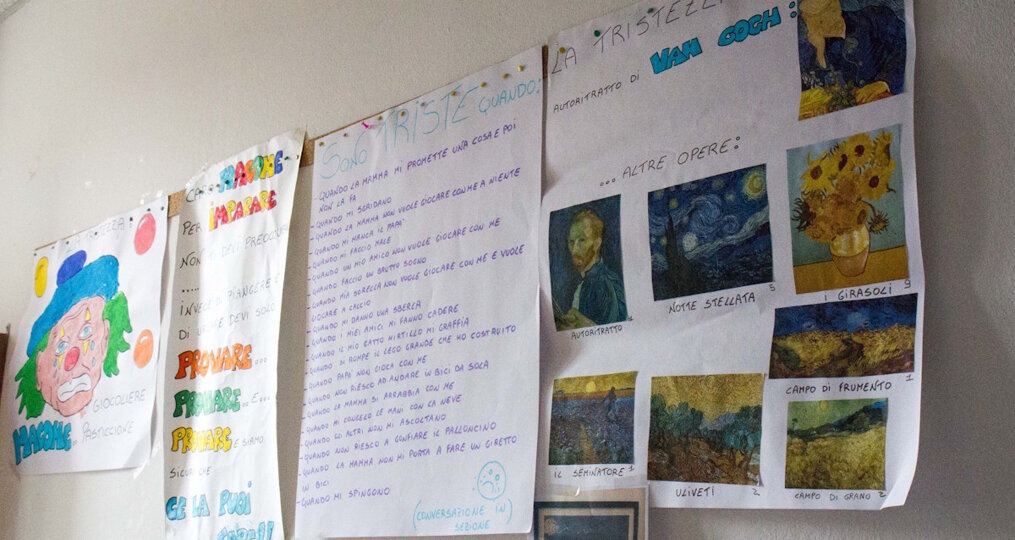 LA
GIOCOLIERE
MAGONE.. PASTICCIONE
CARO MAGONE
PER IMPARARE
NON TI DEVI PREOCCUPARE
.....
INVECE DI PIANGERE E
DI URLARE DEVI SOLO
PROVARE...
PROVARE.. E...
PROVARE E SIAMO
SICURI CHE
CE LA PUOI
SONO TRISTE QUANDO:
- QUANDO LA MAMMA MI PROMETTE UNA COSA E POI
NON LA FA
- QUANDO MI SGRIDANO
- QUANDO LA MAMMA NON VUOLE GIOCARE CON ME A NIENTE
- QUANDO MI MANCA IL PAPA'
- QUANDO MI FACCIO MALE
- QUANDO UN MIO AMICO NON VUOLE GIOCARE CON ME
- QUANDO FACCIO UN BRUTTO SOGNO
- QUANDO MIA SORELLA NON VUOLE GIOCARE CON ME E VUOLE
GIOCARE A CALCIO
- QUANDO MI DANNO UNA SBERLA
- QUANDO I MIEI AMICI MI FANNO CADERE
- QUANDO IL MIO GATTO MIRTILLO MI GRAFFIA
- QUANDO SI ROMPE IL LEGO GRANDE CHE HO COSTRUITO
- QUANDO PAPÀ NON GIOCA CON ME
- QUANDO NON RIESCO AD ANDARE IN BICI DA SOLA
- QUANDO LA MAMMA SI ARRABBIA CON ME
- QUANDO MI CONGELO LE MANI CON LA NEVE
- QUANDO GLI ALTRI NON MI ASCOLTANO
- QUANDO NON RIESCO A GONFIARE IL PALLONCINO
- QUANDO LA MAMMA NON MI PORTA A FARE UN GIRETTO
IN BICI
- QUANDO MI SPINGONO
(CONVERSAZIONE IN)
SEZIONE
LA TRISTEZZA
AUTORITRATTO DI VAN GOGH:
... ALTRE OPERE:
AUTORITRATTO
NOTTE STELLATA 5
I GIRASOLI 9
CAMPO DI FRUMENTO 1
IL SEMINATORE 1
ULIVETI 2
CAMPO DI GRANO 2